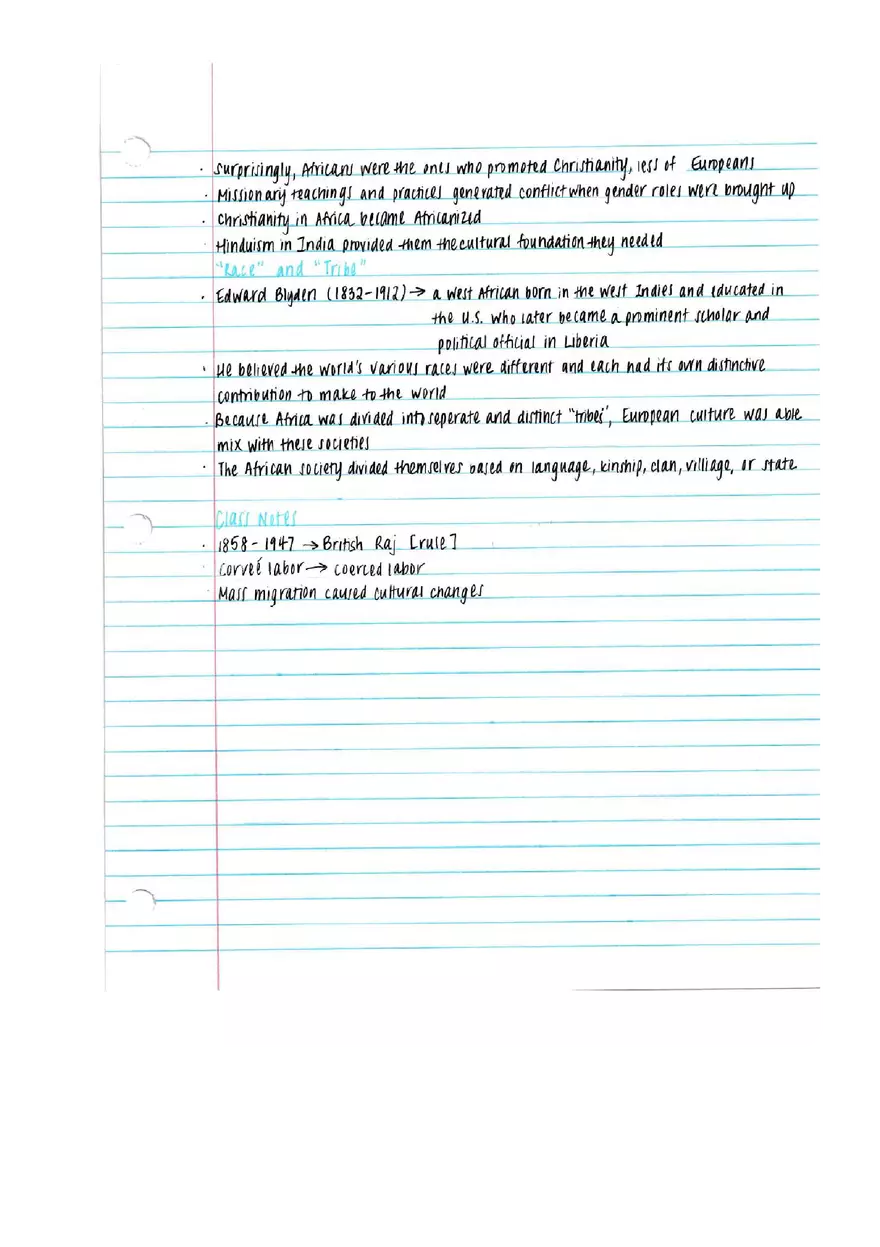 · Surprisingly, Africans were the ones who promoted Christianity, less of Europeans
· Missionary teachings and practices generated conflict when gender roles were brought up
· Christianity in Africa became Africanized
· Hinduism in India provided them the cultural foundation they needed
"Race" and "Tribe"
· Edward Blyden (1832-1912) → a West African born in the West Indies and educated in
the U.S. who later became a prominent scholar and
political official in Liberia
· He believed the world's various races were different and each had its own distinctive
contribution to make to the world
· Because Africa was divided into seperate and distinct "tribes", European culture was able
mix with these societies
· The African society divided themselves based on language, kinship, clan, villiage, or state
Class Notes
· 1858-1947 → British Raj [rule]
· Corveé labor → coerced labor
· Mass migration caused cultural changes